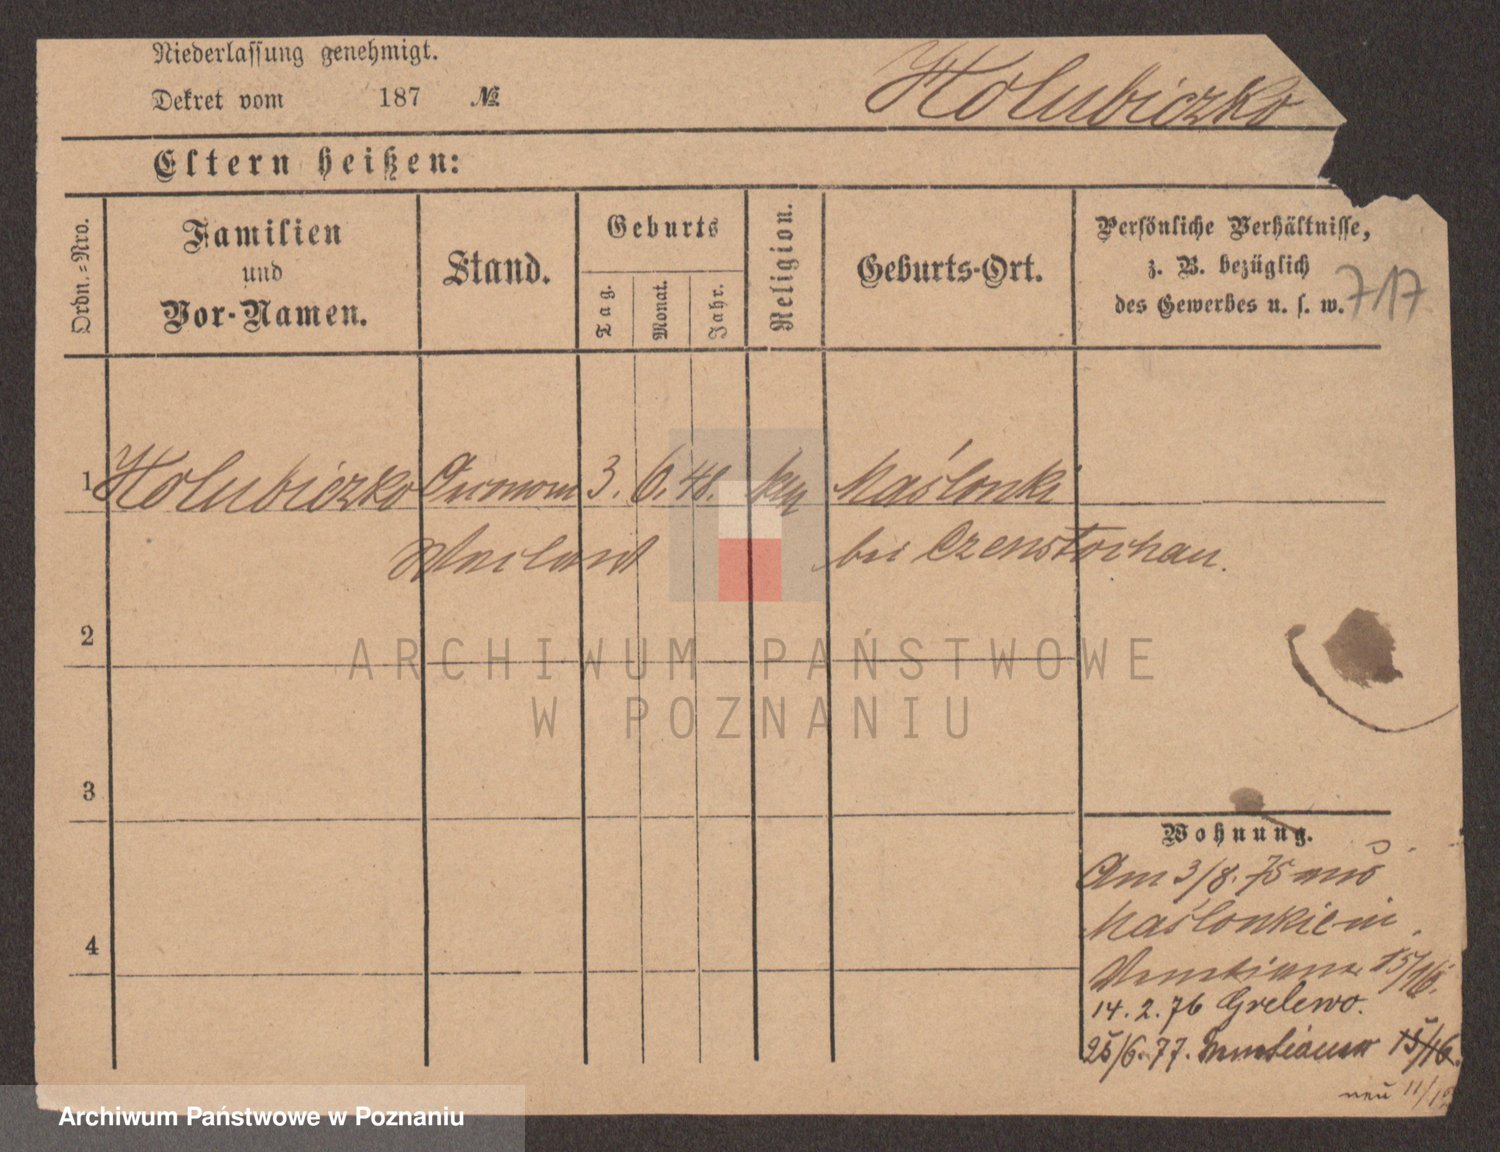 Niederlassung genehmigt.
Dekret vom 187 №
Holubiczko
Eltern heißen:
Ordn.=Nro.
Familien
und
Vor-Namen.
Stand.
Geburts
Tag.
Monat.
Jahr.
Religion.
Geburts-Ort.
Persönliche Verhältnisse,
z. B. bezüglich
des Gewerbes u. s. w.
717
1 Holubiczko 3. 6. 48. Maślonki
bei Czenstochau.
2
ARCHIWUM PAŃSTWOWE
W POZNANIU
3
Wohnung.
Am 3/8. 75 aus
4
15/16.
14. 2. 76 Grelewo.
25/6. 77. 15/16.
neu 11/12
Archiwum Państwowe w Poznaniu